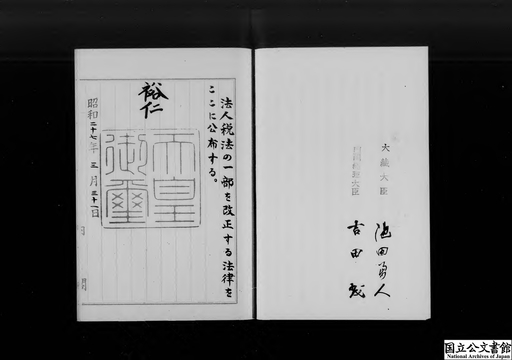 法人税法の一部を改正する法律を
ここに公布する。
裕仁
天皇
御璽
昭和二十七年三月三十一日
大蔵大臣 池田勇人
内閣総理大臣 吉田茂
国立公文書館
National Archives of Japan